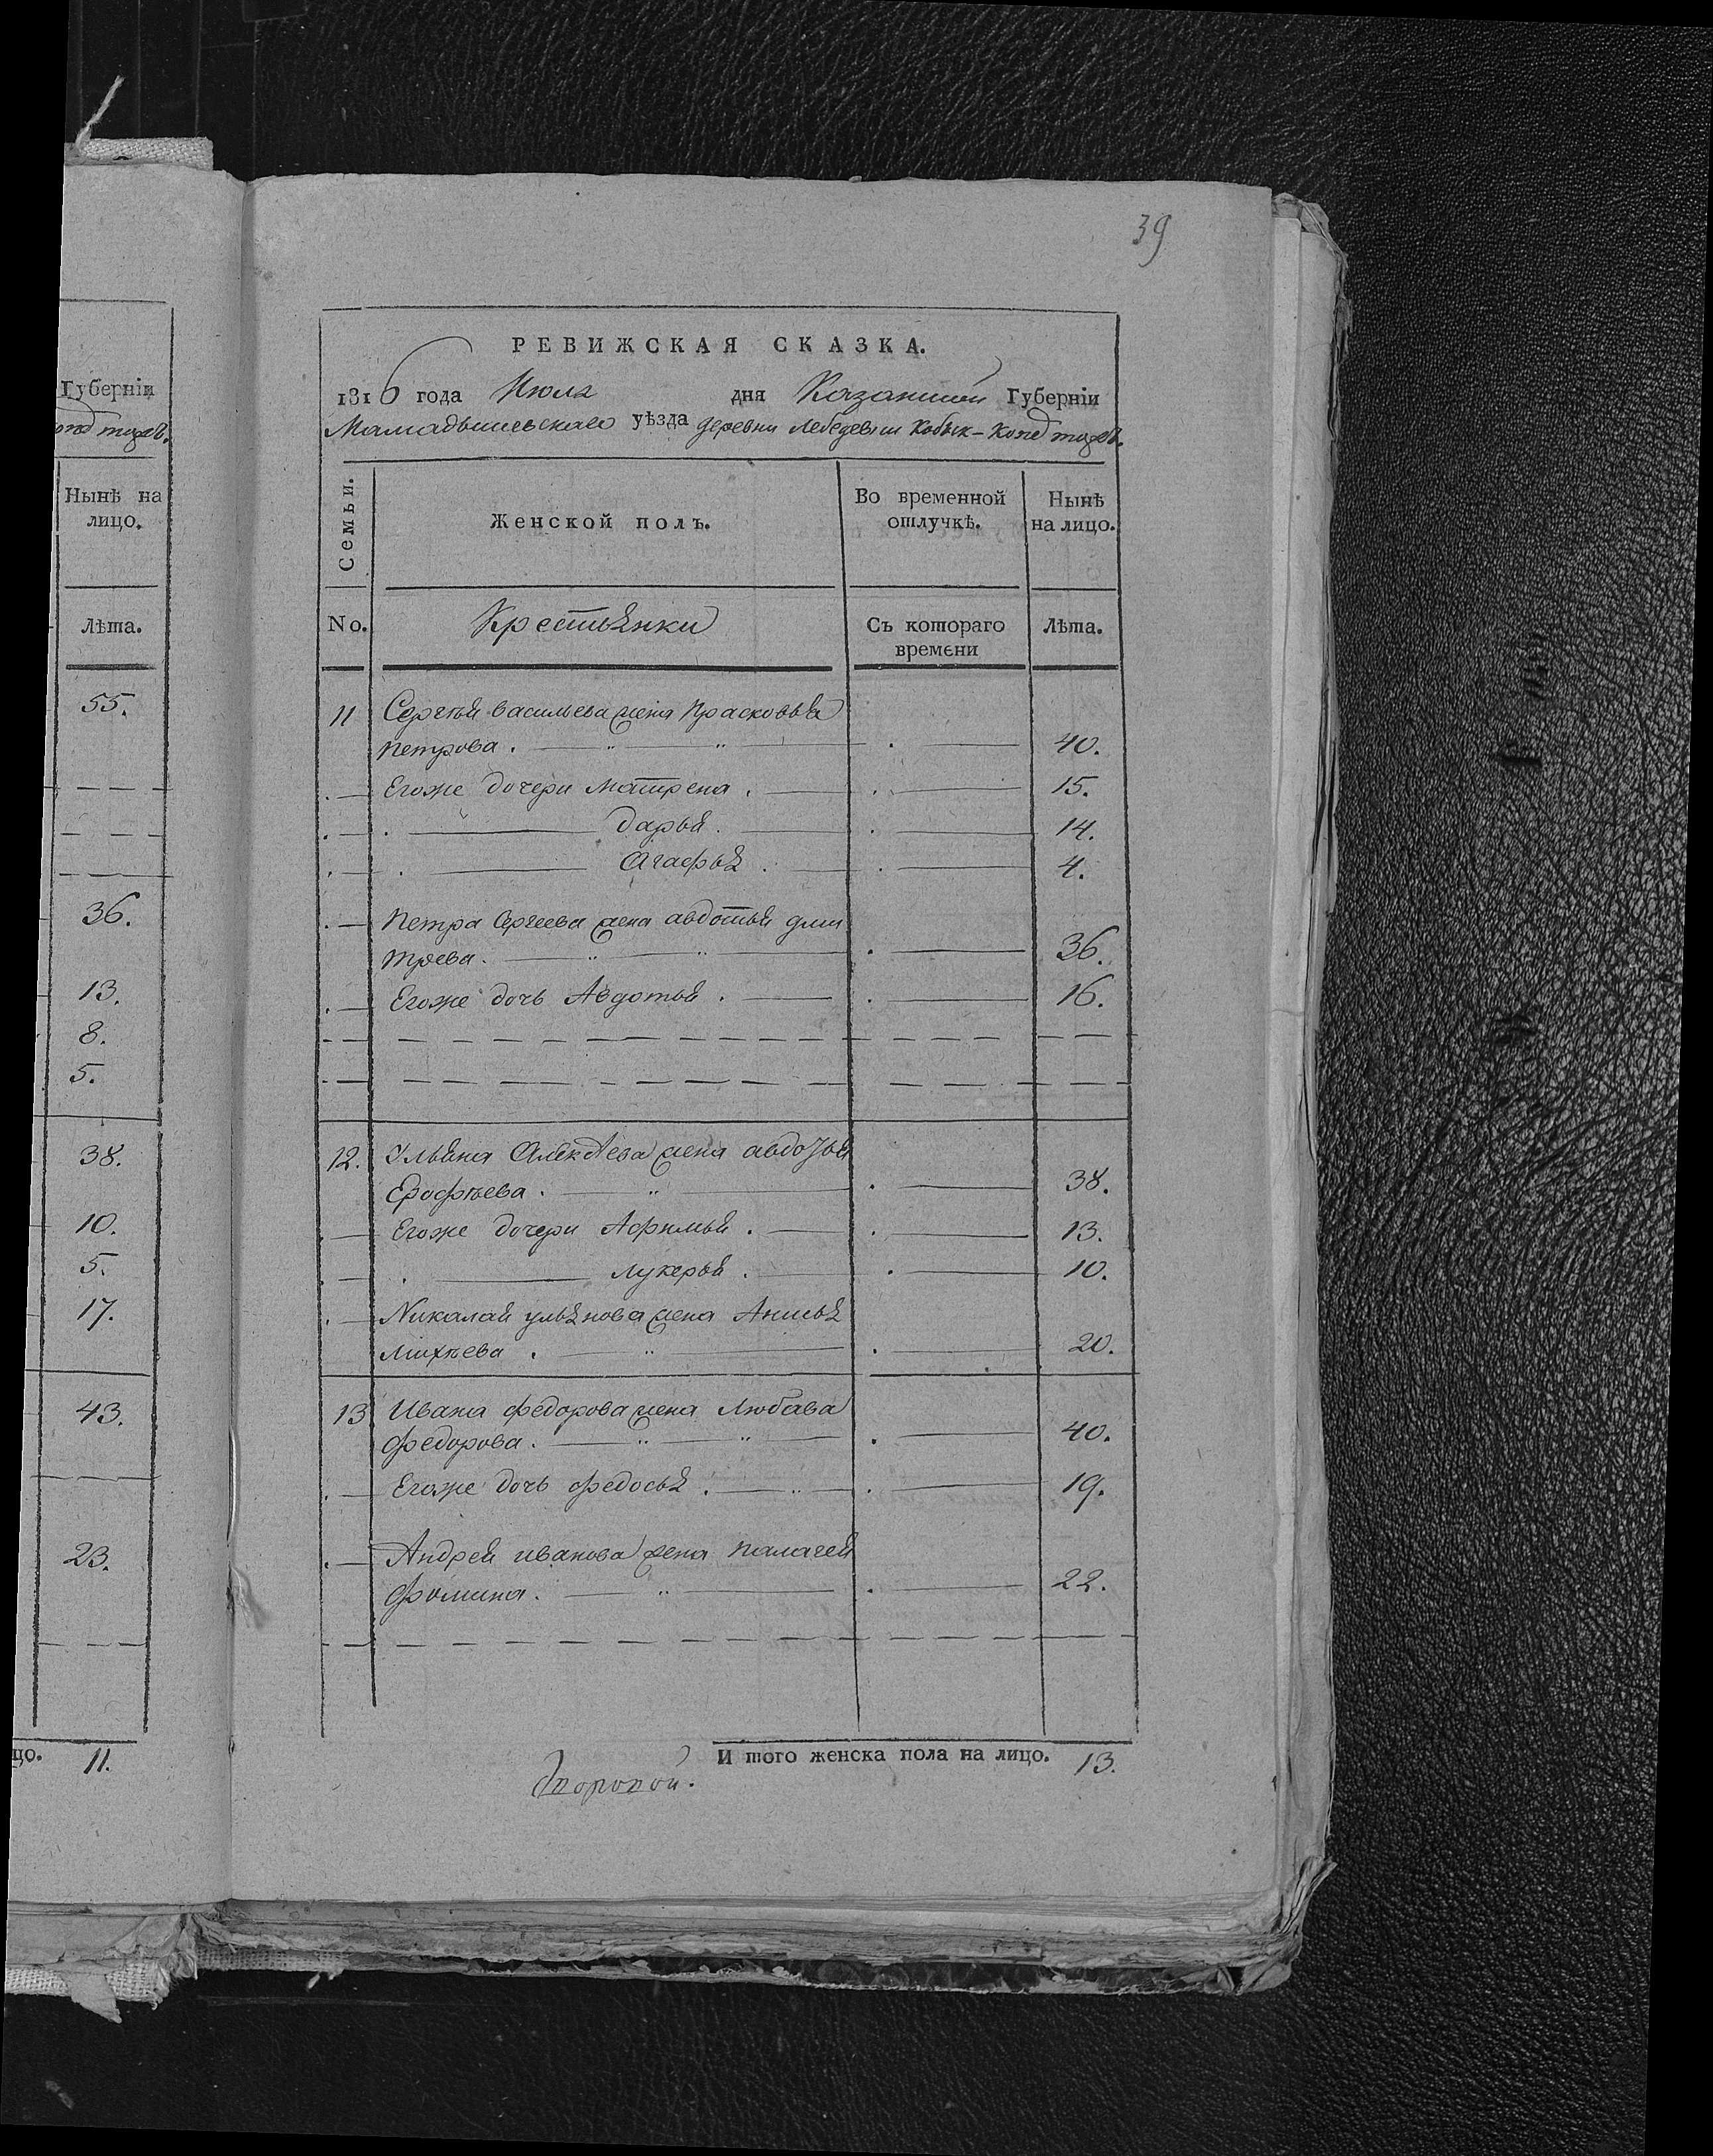 Губерніи
Нынѣ на
лицо.
Лѣта.
55.
36.
13.
8.
5.
38.
10.
5.
17.
43.
23.
цо. 11.
39
РЕВИЖСКАЯ СКАЗКА.
1816 года Июля дня Казанской Губерніи
Мамадышевскаго уѣзда деревни Лебедевки Кабык-Копер тожъ.
Семьи.
Женской полъ.
Во временной
отлучкѣ.
Нынѣ
на лицо.
No.
Крестьянки
Съ котораго
времени
Лѣта.
11 Сергѣя Васильева жена Прасковья
Петрова. 40.
Егоже дочери Матрена. 15.
Дарья. 14.
Агафья. 4.
Петра Сергеева жена Авдотья Дми
трева. 36.
Егоже дочь Авдотья. 16.
12. Ульяна Алексѣева жена Авдотья
Ерофѣева. 38.
Егоже дочери Афимья. 13.
Лукерья. 10.
Никалая Ульянова жена Анисья
Михѣева. 20.
13 Ивана Федорова жена Любава
Федорова. 40.
Егоже дочь Федосья. 19.
Андрея Иванова жена Палагея
Фомина. 22.
И того женска пола на лицо. 13.